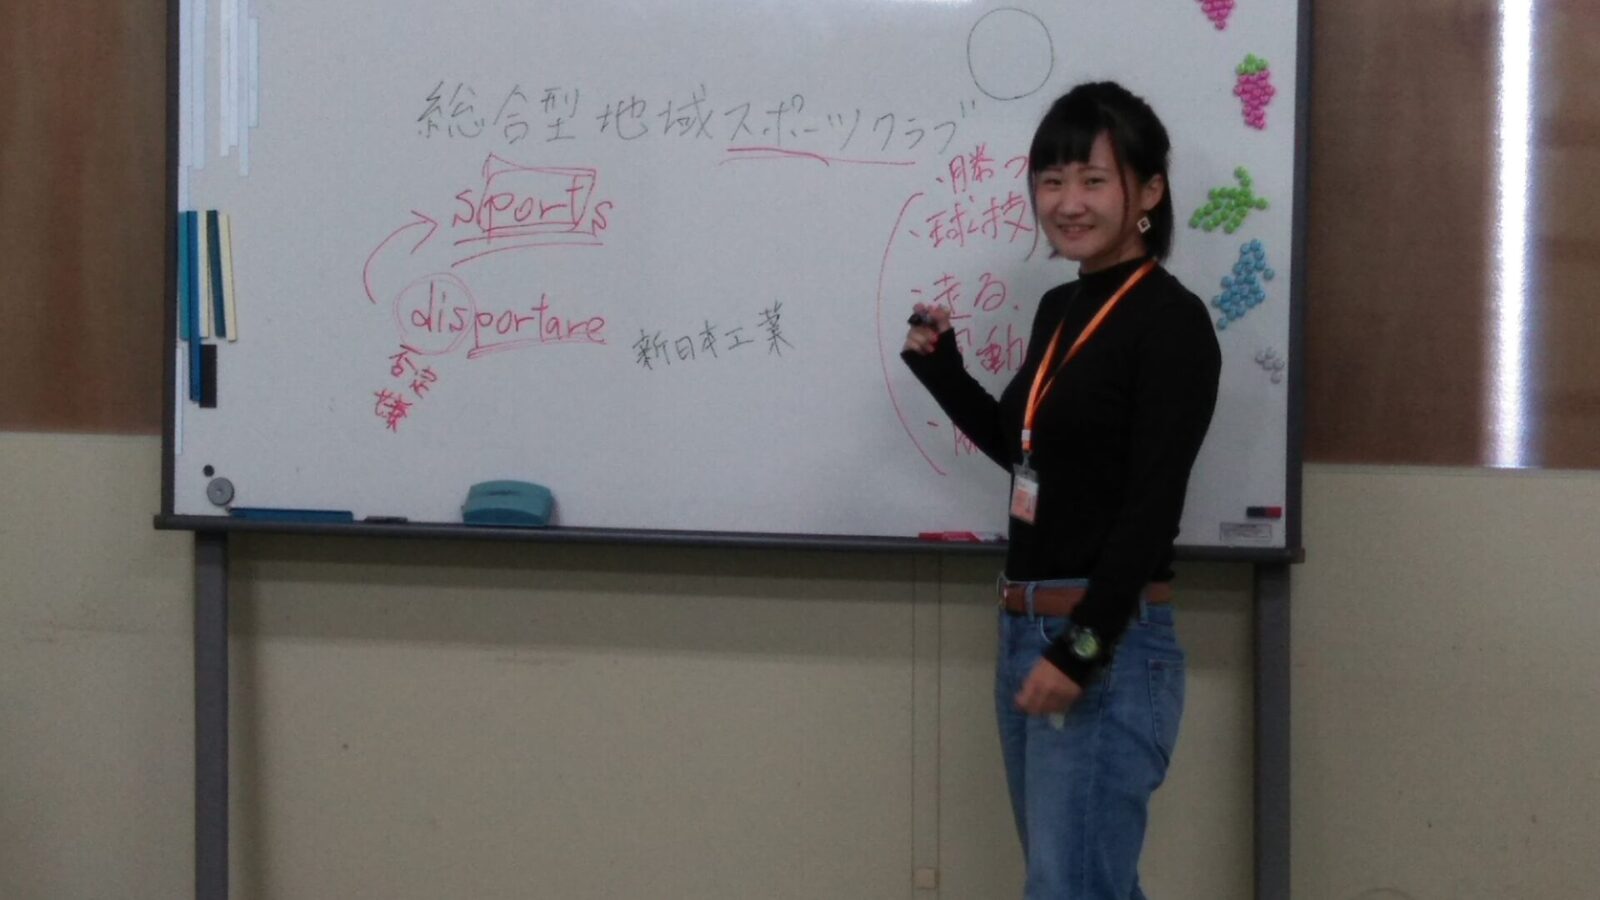 総合型地域スポーツクラブ
sports
disportare
否定
新日本工業
・勝つ
・球技
・走る、
動